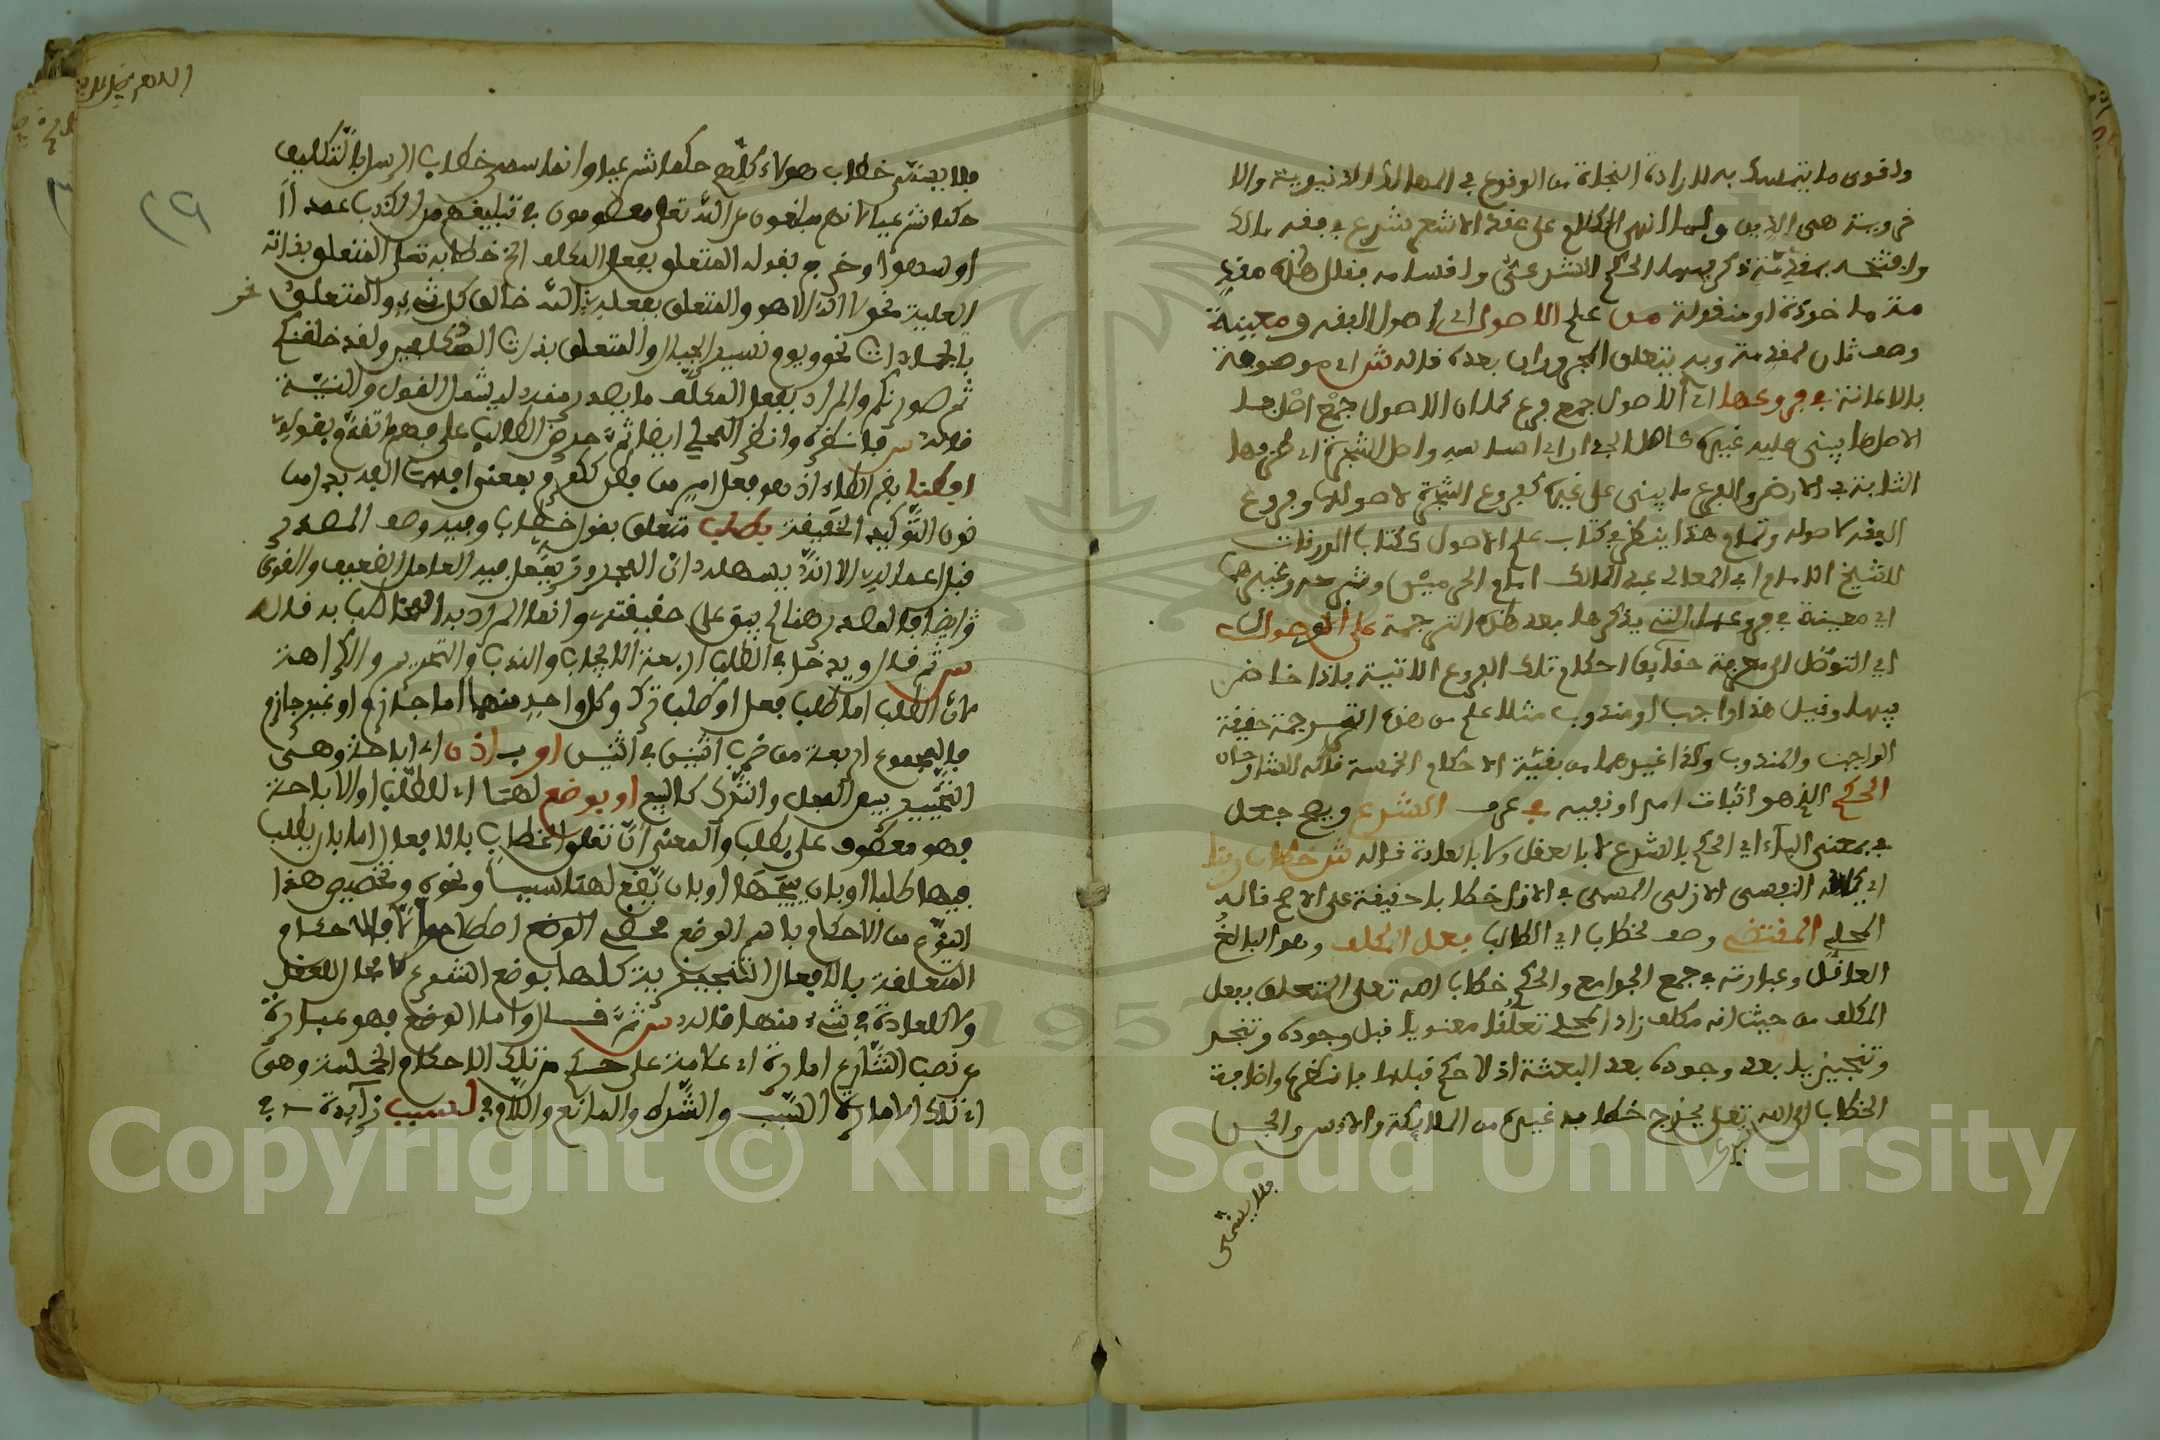 واقوى ما يتمسك به لارادة النجاة من الوقوع في المهالك الدنيوية والا
خروية هي الدين ولما انهى الكلام على عقد الاشعري شرع في فقه مالك
وافتتحه بمقدمة ذكر فيها الحكم الشرعي واقسامه فقال هذه مقد
مة ماخوذة او منقولة من علم الاصول اي اصول الفقه ومعينة
وصف ثان لمقدمة وبه يتعلق المجروران بعده قاله ش اي موصوفة
بالاعانة في فروعها اي الاصول جمع فرع كما ان الاصول جمع اصل
الاصل ما يبنى عليه غيره كاصل الجدار اي اساسه واصل الشجرة اي طرفها
الثابتة في الارض والفرع ما يبنى على غيره كفروع الشجرة لاصولها وفروع
الفقه لاصوله وتمام هذا ينظر في كتاب علم الاصول ككتاب الورقات
للشيخ الامام ابي المعالي عبد الملك امام الحرمين وشرحه وغيرهما
اي معينة في فروعها التي يذكرها بعد هذه الترجمة على الوصول
اي التوصل الى معرفة حقايق احكام تلك الفروع الاتية فاذا خاض
فيها وقيل هذا واجب او مندوب مثلا علم من هذه الترجمة حقيقة
الواجب والمندوب وكذا غيرهما من بقية الاحكام الخمسة قاله الشارحان
الحكم الذي هو اثبات امر او نفيه في عرف الشرع ويصح جعل
في بمعنى الباء اي الحكم بالشرع لا بالعقل ولا بالعادة قاله ش خطاب ربنا
اي كلامه النفسي الازلي المسمى في الازل خطابا حقيقة على الاصح قاله
المحلي المقتضي وصف لخطاب اي الطالب فعل المكلف وهو البالغ
العاقل وعبارته في جمع الجوامع والحكم خطاب الله تعالى المتعلق بفعل
المكلف من حيث انه مكلف زاد المحلي تعلقا معنويا قبل وجوده وتنجيز
وتنجيزيا بعد وجوده بعد البعثة اذ لا حكم قبلها فانظره واضافة
الخطاب الى الله تعالى يخرج خطاب غيره من الملايكة والانس والجن
فلا يسمى
فلا يسمى خطاب هولاء كلهم حكما شرعيا وانما سمي خطاب الرسل بالتكليف
حكما شرعيا لانهم مبلغون عن الله تعالى معصومون في تبليغهم من الكذب عمدا
او سهوا وخرج بقوله المتعلق بفعل المكلف الخ خطابه تعالى المتعلق بذاته
العلية نحو لا اله الا هو والمتعلق بفعله الله خالق كل شيء والمتعلق
بالجمادات نحو ويوم نسير الجبال والمتعلق بذات المكلفين ولقد خلقنكم
ثم صورنكم والمراد بفعل المكلف ما يصدر منه ليشمل القول والنية
قاله س فانظره وانظر المحلي ايضا ثم
افطنا بضم الطاء اذ هو فعل امر من فطن ومعنى افهمت
نون التوكيد الخفيفة بطلب متعلق بقول خطاب وفيه وصف المصدر
قبل اعماله الا انه يسهله ان المجرور يعمل فيه العامل الضعيف والقوي
وايضا فالمصدر هنا لم يبق على حقيقته وانما المراد به المخاطب به قاله
س ثم قال ويدخل في الطلب اربعة الايجاب والندب والتحريم والكراهة
لان الطلب اما طلب فعل او طلب ترك وكل واحد منهما اما جازم او غير جازم
فالمجموع اربعة من ضرب اثنين في اثنين او ب اذن اي اباحة وهي
التخيير بين الفعل والترك كالبيع او بوضع لهما اي للطلب او الاباحة
فهو معطوف على بطلب والمعنى ان تعلق الخطاب بالافعال اما بان يطلب
فيها طلبا او بان يبيحها او بان يضع لهما سببا ونحوه وتخصيص هذا
النوع من الاحكام باسم الوضع محض اصطلاح والا فالاحكام
المتعلقة بالافعال التنجيزية كلها بوضع الشرع لا مجال للعقل
ولا للعادة في شيء منها قاله س ثم قال واما الوضع فهو عبارة
عن نصب الشارع امارة اي علامة على حكم من تلك الاحكام الخمسة وهي
اي تلك الامارة السبب والشرط والمانع واللام في لسبب زايدة في